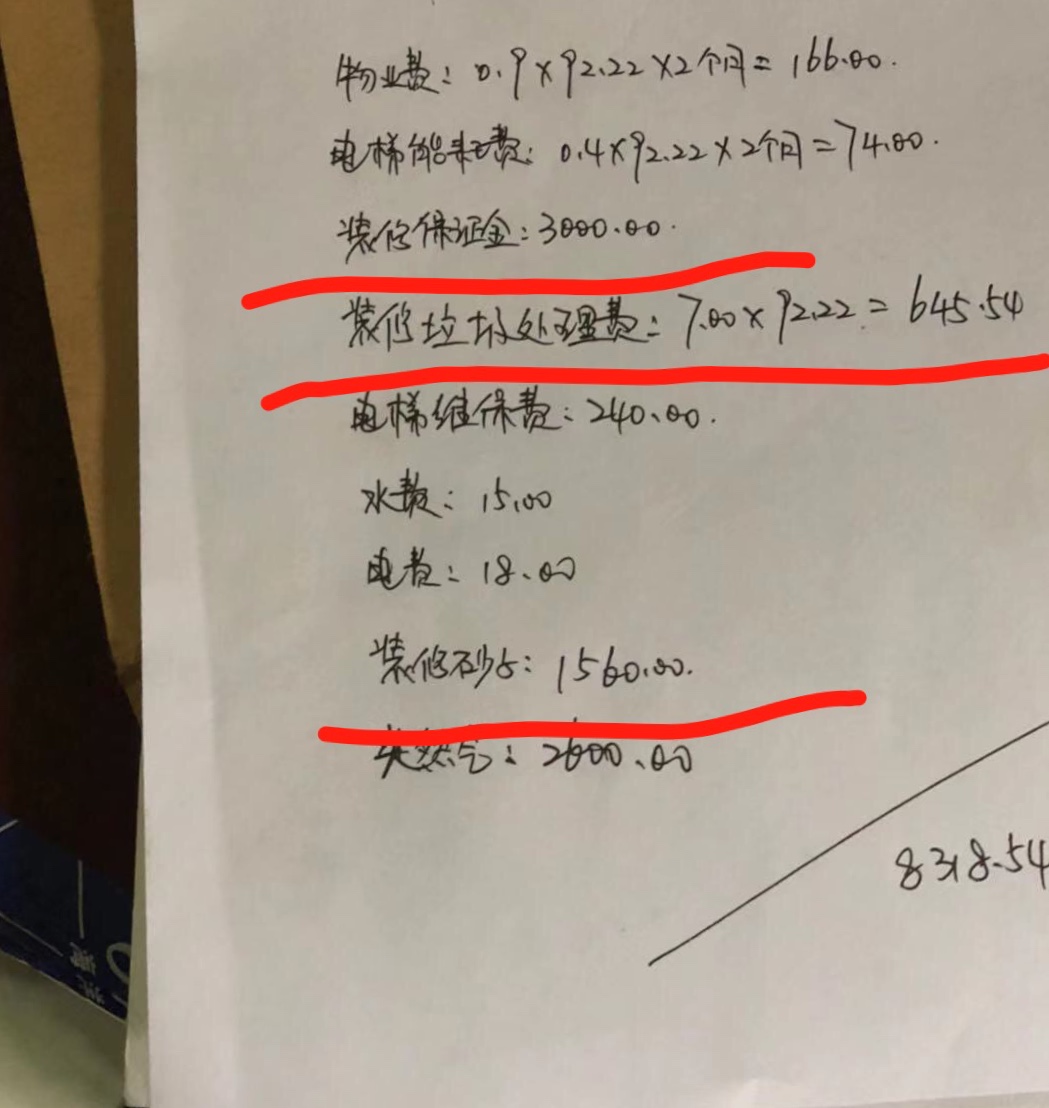 物业费：0.9×92.22×2个月=166.00.
电梯能耗费：0.4×92.22×2个月=74.00.
装修保证金：3000.00.
装修垃圾处理费：7.00×92.22=645.54
电梯维保费：240.00.
水费：15.00
电费：18.00
装修砂石：1560.00.
天然气：2600.00
8318.54